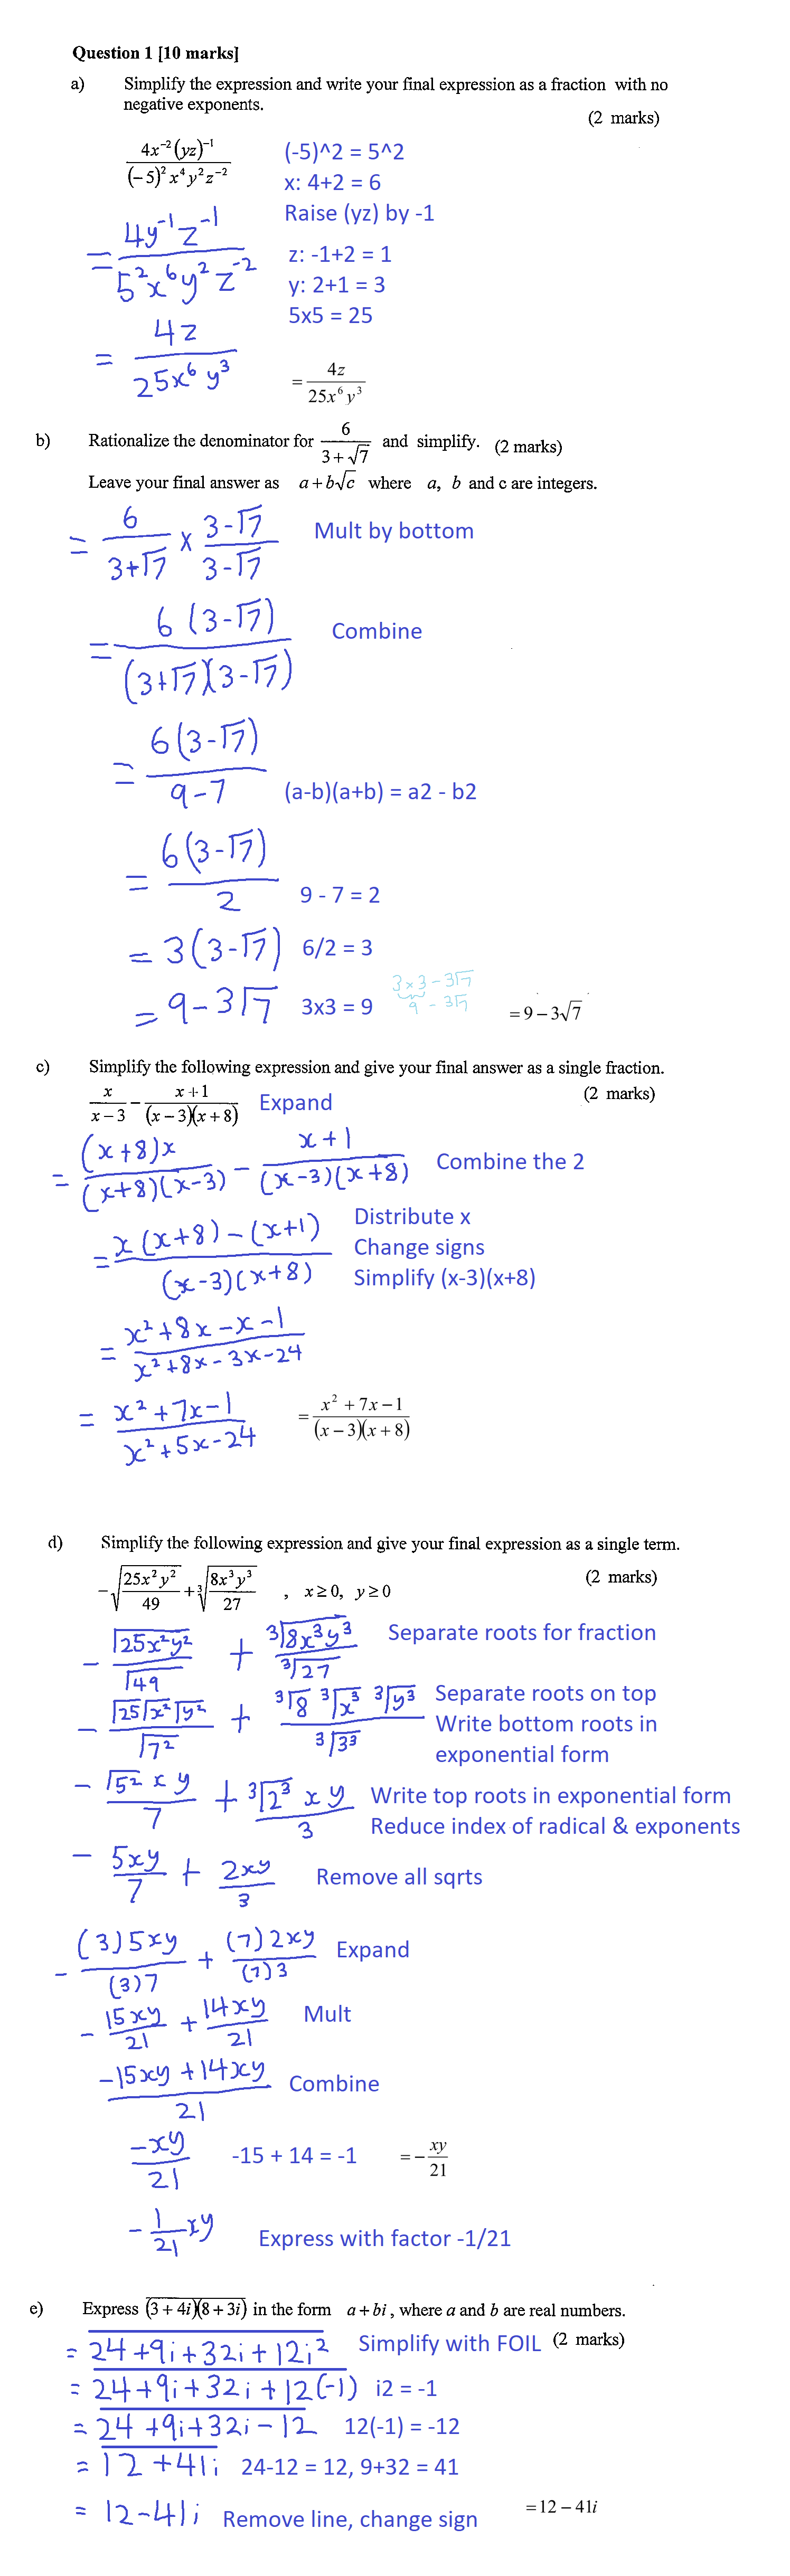 Question 1 [10 marks]
a) Simplify the expression and write your final expression as a fraction with no
negative exponents.
(2 marks)
4x⁻²(yz)⁻¹ / (−5)²x⁴y²z⁻²
(-5)^2 = 5^2
x: 4+2 = 6
Raise (yz) by -1
= 4y⁻¹z⁻¹ / 5²x⁶y²z⁻²
z: -1+2 = 1
y: 2+1 = 3
5x5 = 25
= 4z / 25x⁶y³
= 4z / 25x⁶y³
b) Rationalize the denominator for 6 / 3+√7 and simplify. (2 marks)
Leave your final answer as a+b√c where a, b and c are integers.
= 6 / 3+√7 × 3-√7 / 3-√7 Mult by bottom
= 6(3-√7) / (3+√7)(3-√7) Combine
= 6(3-√7) / 9-7 (a-b)(a+b) = a2 - b2
= 6(3-√7) / 2 9 - 7 = 2
= 3(3-√7) 6/2 = 3
3×3-3√7
= 9-3√7 3x3 = 9 9 - 3√7 = 9−3√7
c) Simplify the following expression and give your final answer as a single fraction.
(2 marks)
x / x−3 − x+1 / (x−3)(x+8) Expand
= (x+8)x / (x+8)(x-3) - x+1 / (x-3)(x+8) Combine the 2
= x(x+8)-(x+1) / (x-3)(x+8) Distribute x
Change signs
Simplify (x-3)(x+8)
= x²+8x-x-1 / x²+8x-3x-24
= x²+7x-1 / x²+5x-24 = x²+7x−1 / (x−3)(x+8)
d) Simplify the following expression and give your final expression as a single term.
(2 marks)
−√(25x²y² / 49) + ³√(8x³y³ / 27) , x≥0, y≥0
- √25x²y² / √49 + ³√8x³y³ / ³√27 Separate roots for fraction
- √25√x²√y² / √7² + ³√8 ³√x³ ³√y³ / ³√3³ Separate roots on top
Write bottom roots in
exponential form
- √5² x y / 7 + ³√2³ x y / 3 Write top roots in exponential form
Reduce index of radical & exponents
- 5xy / 7 + 2xy / 3 Remove all sqrts
- (3)5xy / (3)7 + (7)2xy / (7)3 Expand
- 15xy / 21 + 14xy / 21 Mult
-15xy+14xy / 21 Combine
-xy / 21 -15 + 14 = -1 = − xy / 21
- 1/21 xy Express with factor -1/21
e) Express (3+4i)(8+3i) in the form a+bi, where a and b are real numbers.
= 24+9i+32i+12i² Simplify with FOIL (2 marks)
= 24+9i+32i+12(-1) i2 = -1
= 24+9i+32i-12 12(-1) = -12
= 12+41i 24-12 = 12, 9+32 = 41
= 12-41i Remove line, change sign =12−41i